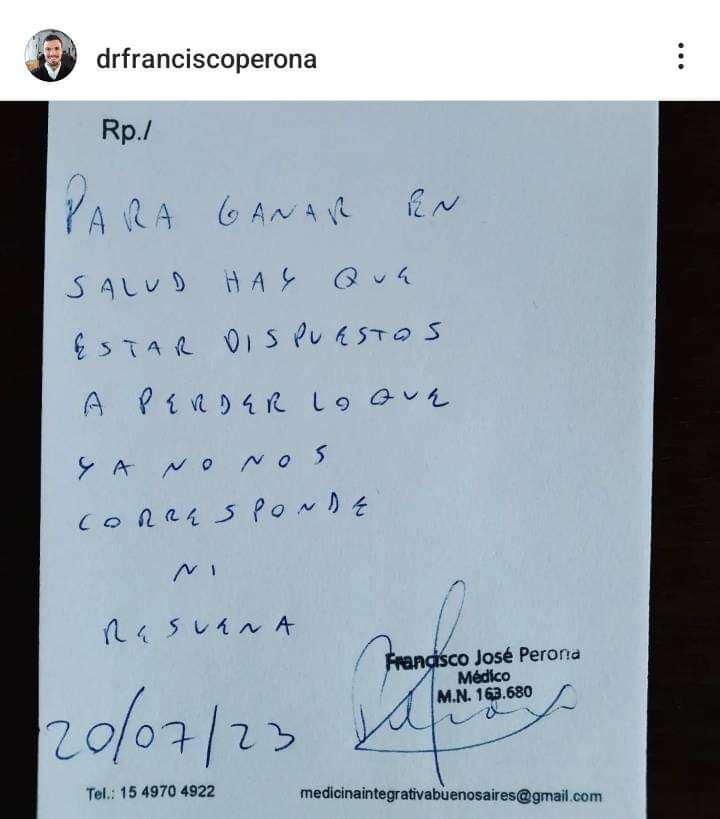 drfranciscoperona
Rp./
PARA GANAR EN
SALUD HAY QUE
ESTAR DISPUESTOS
A PERDER LO QUE
YA NO NOS
CORRESPONDE
NI
RESUENA
Francisco José Perona
Médico
M.N. 163.680
20/07/23
Tel.: 15 4970 4922 medicinaintegrativabuenosaires@gmail.com